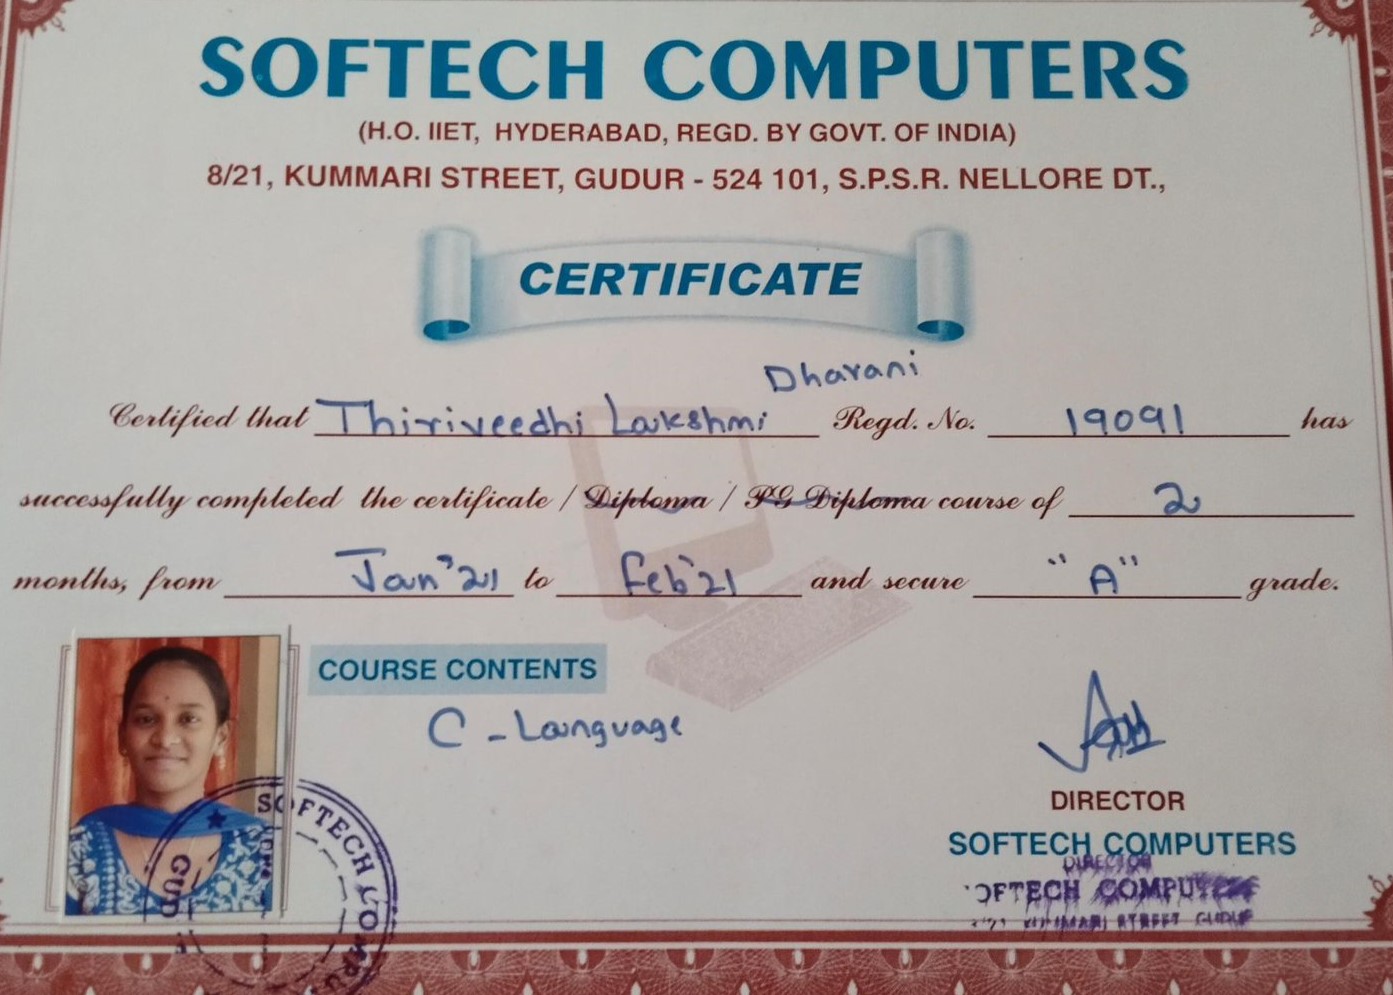 SOFTECH COMPUTERS
(H.O. IIET, HYDERABAD, REGD. BY GOVT. OF INDIA)
8/21, KUMMARI STREET, GUDUR - 524 101, S.P.S.R. NELLORE DT.,
CERTIFICATE
Dharani
Certified that Thiriveedhi Lakshmi Regd. No. 19091 has
successfully completed the certificate / Diploma / PG Diploma course of 2
months, from Jan'21 to Feb'21 and secure "A" grade.
COURSE CONTENTS
C - Language
DIRECTOR
SOFTECH COMPUTERS
DIRECTOR
SOFTECH COMPUTERS
KUMMARI STREET GUDUR
SOFTECH COMPU
GUD